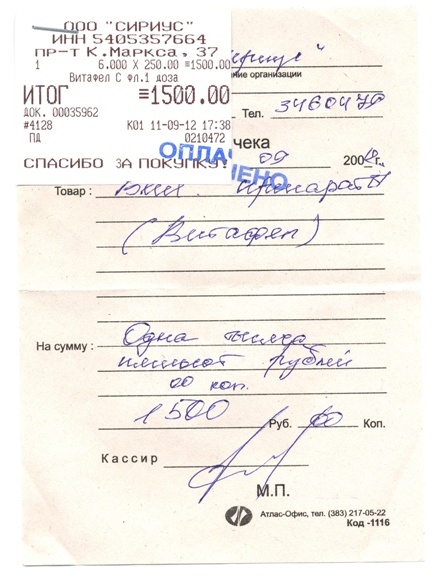 ООО "СИРИУС"
ИНН 5405357664
пр-т К.Маркса, 37
1 6.000 X 250.00 ≡1500.00
Витафел С фл.1 доза
ИТОГ ≡1500.00
ДОК. 00035962
#4128 К01 11-09-12 17:38
ПД 0210472
СПАСИБО ЗА ПОКУПКУ!
ние организации
Тел. 3460470
чека
ОПЛАЧЕНО
09 200 г.
Товар : препараты
(Витафел)
На сумму : Одна тысяча
пятьсот рублей
00 коп.
1500 Руб. 00 Коп.
Кассир
М.П.
Атлас-Офис, тел. (383) 217-05-22
Код -1116